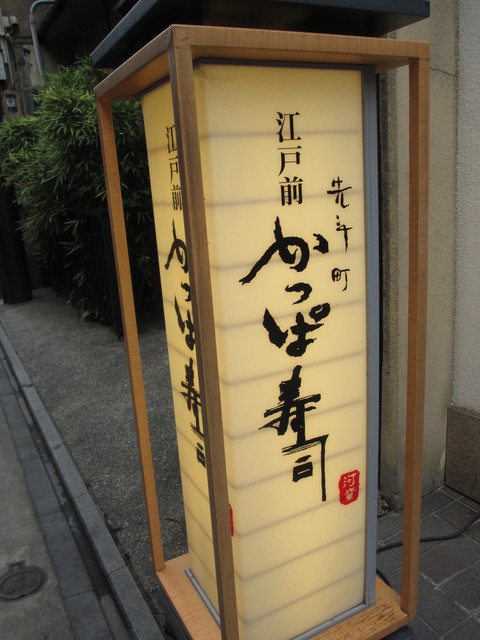 先斗町
江戸前
かっぱ寿司
江戸前
かっぱ寿司